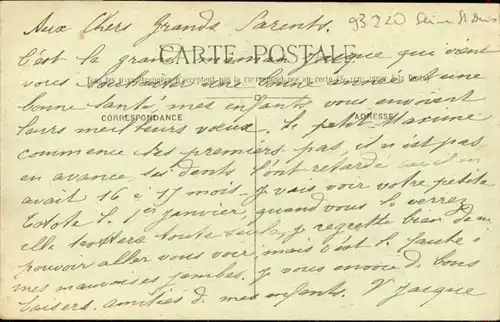 Aux Chers Grands Parents. 93220 Seine St Denis
CARTE POSTALE
C'est la grand maman Jacque qui vient
Tous les pays étrangers n'acceptent pas la correspondance au recto
vous souhaiter une bonne année et une
bonne santé, mes enfants vous envoient
CORRESPONDANCE ADRESSE
leurs meilleurs vœux. le petit Maxime
commence ses premiers pas, il n'est pas
en avance, ses dents l'ont retardé car il en
avait 16 à 17 mois. Je vais voir votre petite
Totote le 1er janvier, quand vous la verrez
elle trottera toute seule, je regrette bien de ne
pouvoir aller vous voir, mais c'est la faute à
mes mauvaises jambes. Je vous envoie de bons
baisers. amitiés de mes enfants. Vve Jacque